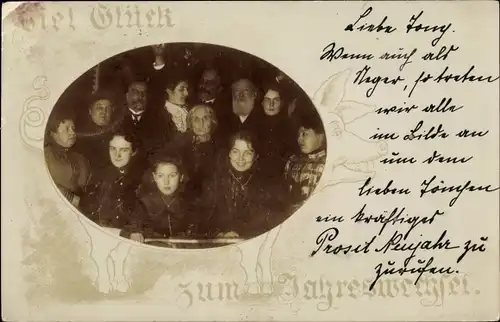 Viel Glück
Liebe Tony.
Wenn auch als
Neger, so treten
wir alle
im Bilde an
um dem
lieben Tönchen
ein kräftiges
Prosit Neujahr zu
zurufen.
zum Jahreswechsel.